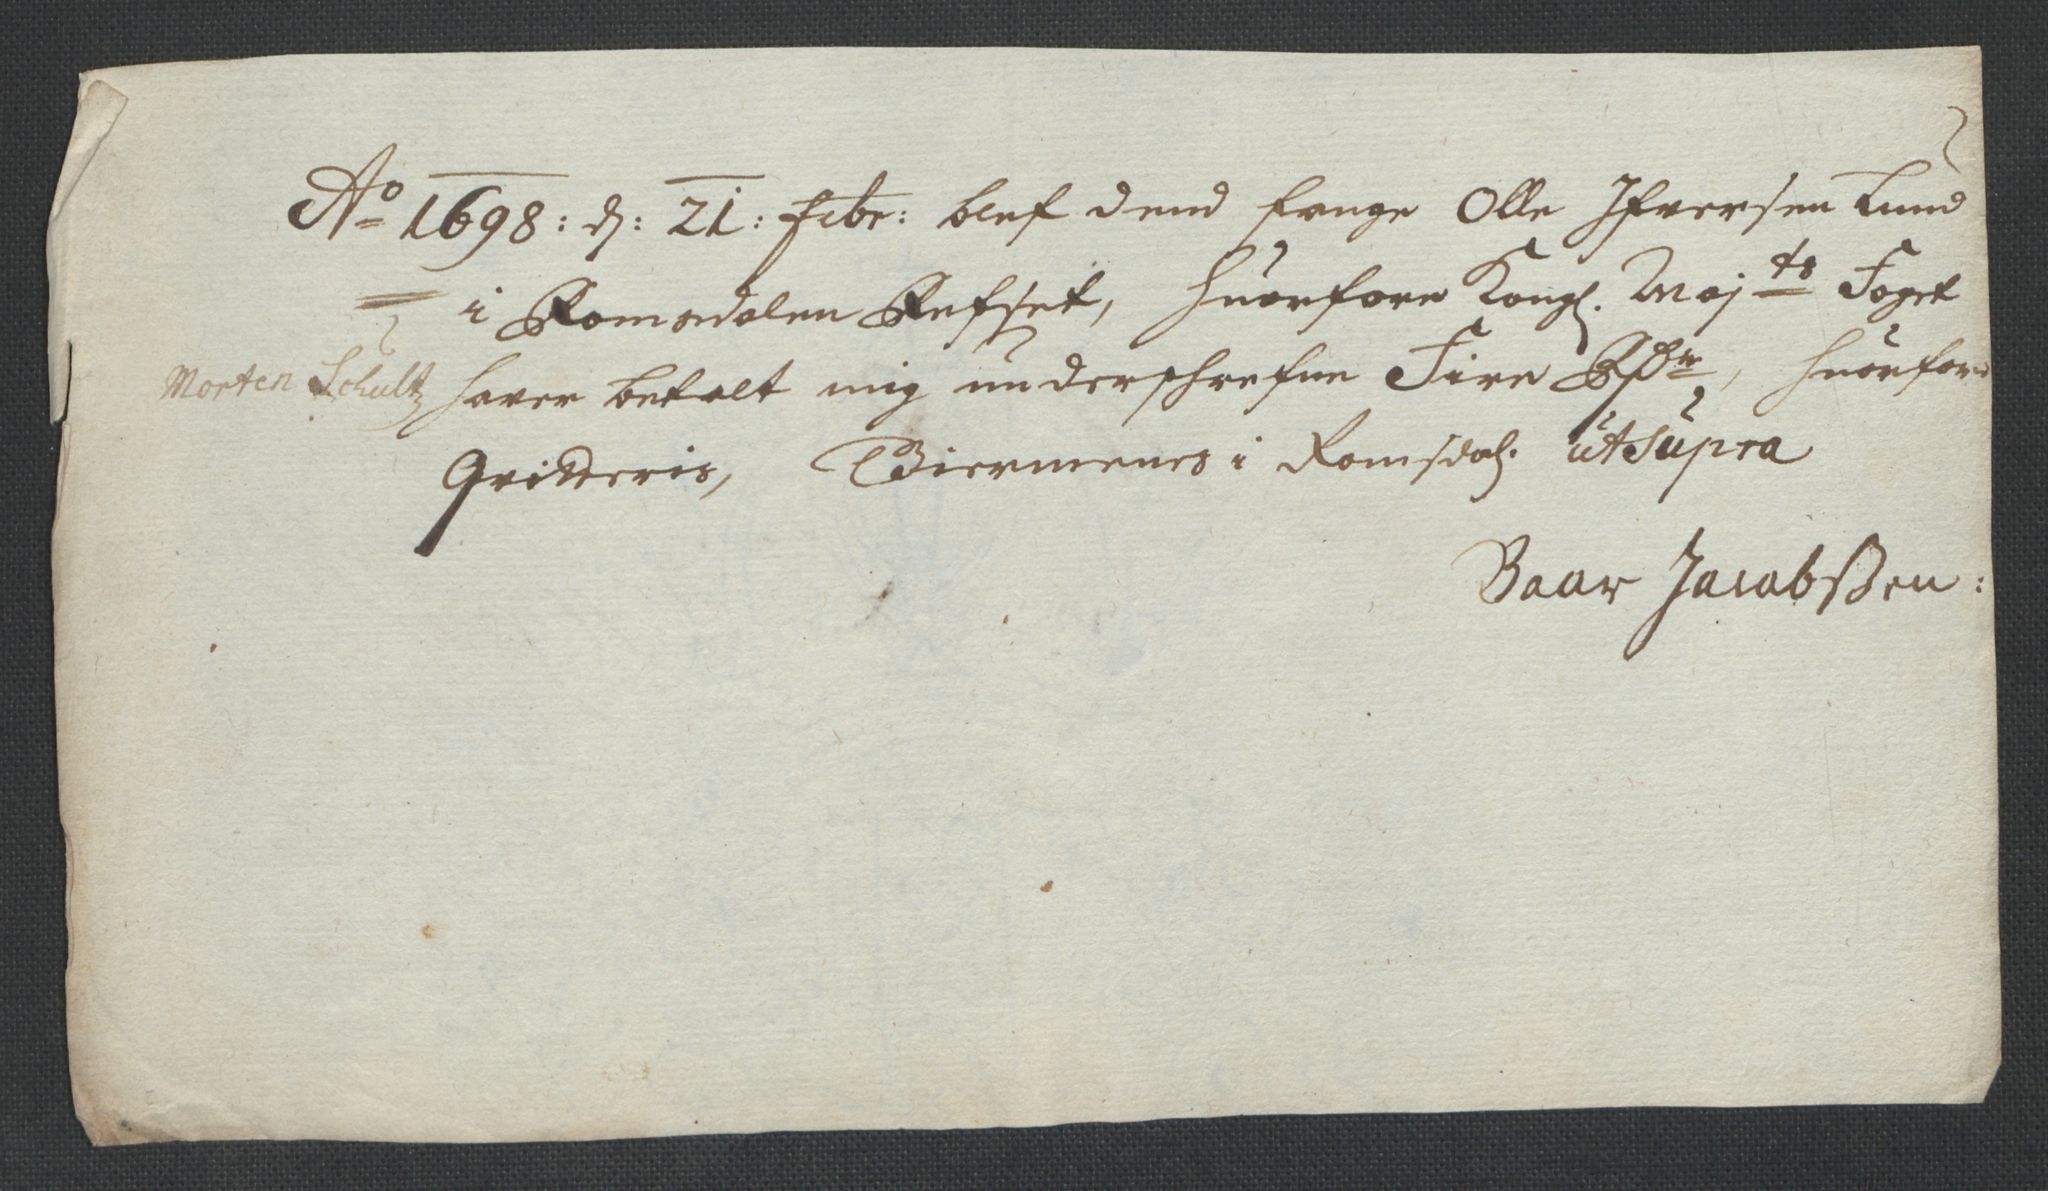 Ao 1698: d: 21: Febr: blef dend fange Olle Ifversen Lund
i Romsdalen Refset, huorfore Kongl. Maj ts Foget
Morten Schultz hafver betalt mig underschrefne Fire Rdr, huorfore
Qvitteris, Biermenes i Romsdal. ut supra
Baar Jacobßen: